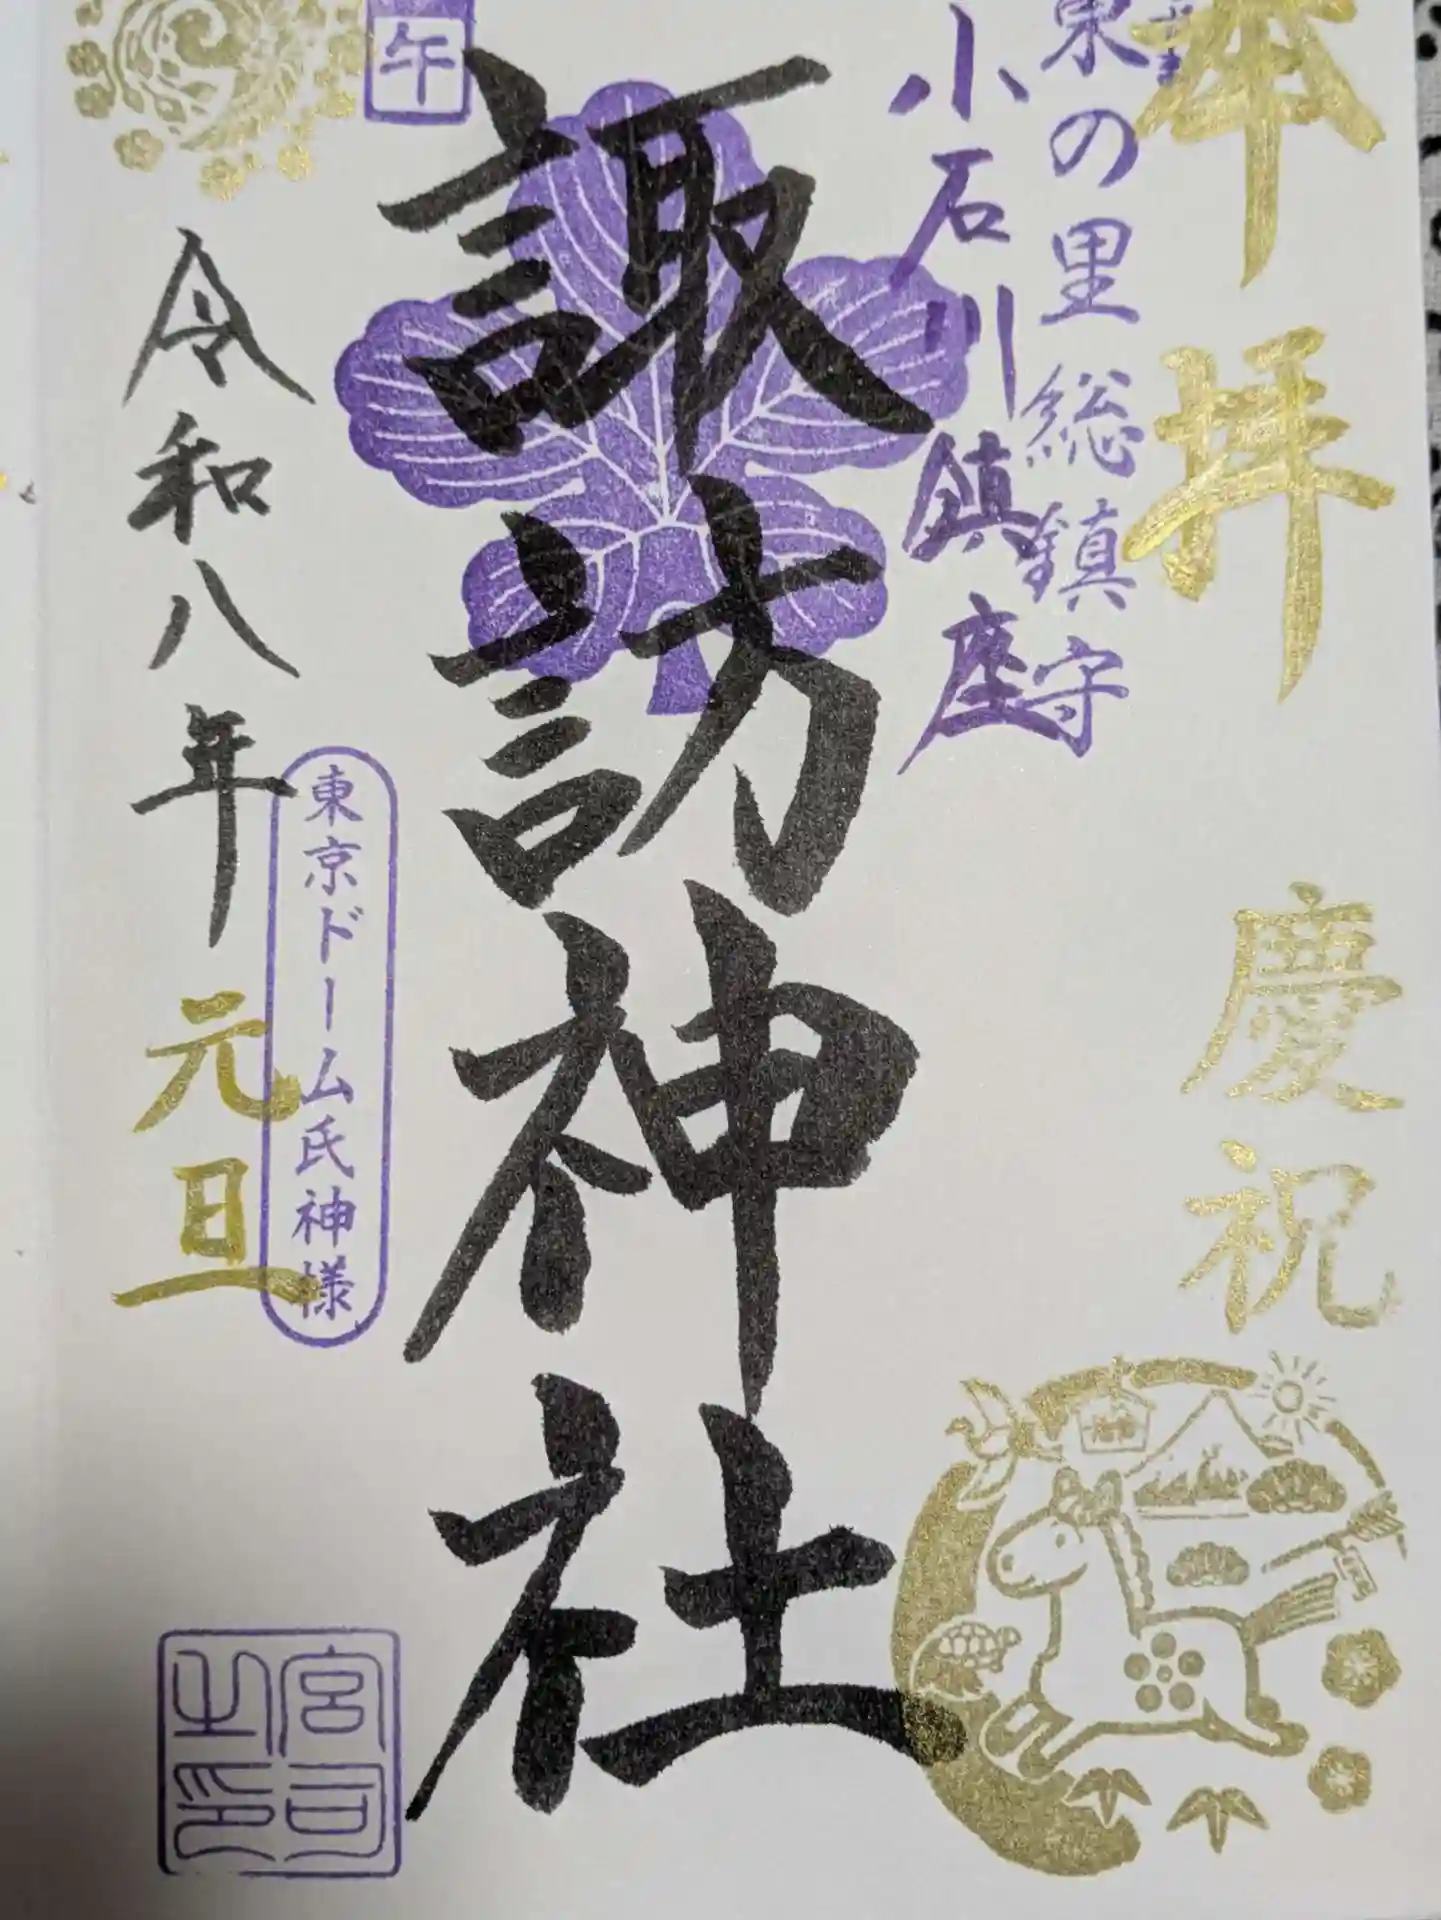 奉拝
慶祝
東の里総鎮守
小石川鎮座
諏訪神社
午
令和八年元旦
東京ドーム氏神様
宮司之印